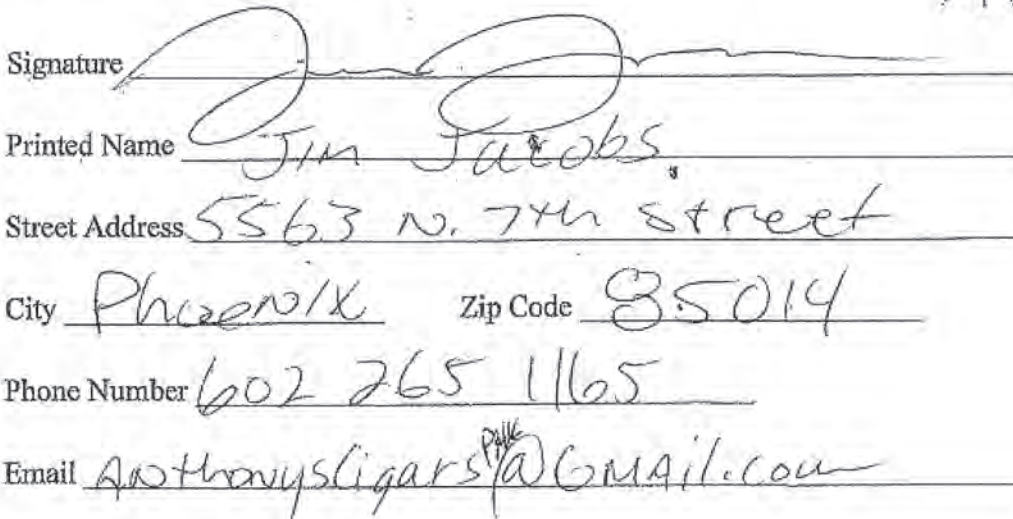 Signature
Printed Name Jim Jacobs
Street Address 5563 N. 7th Street
City Phoenix Zip Code 85014
Phone Number 602 265 1165
Email AnthonysCigars @GMAil.com